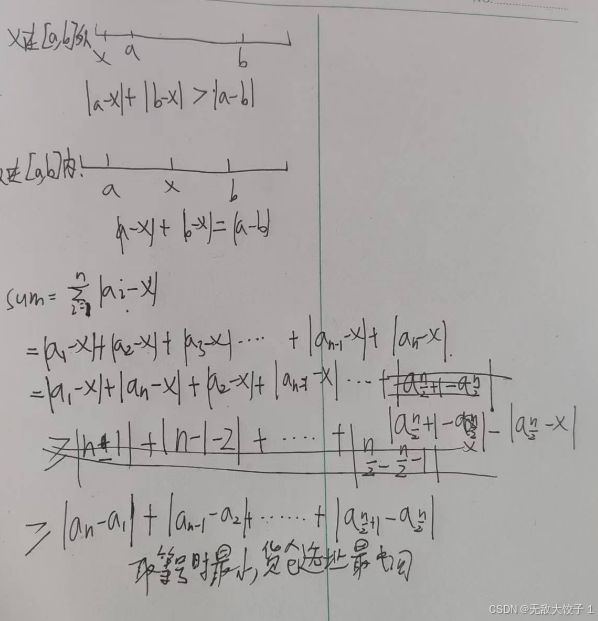 x在[a,b]外
x a b
|a-x|+|b-x|>|a-b|
x在[a,b]内:
a x b
|a-x|+|b-x|=|a-b|
sum=\sum_{i=1}^{n}|a_i-x|
=|a_1-x|+|a_2-x|+|a_3-x|····+|a_{n-1}-x|+|a_n-x|.
=|a_1-x|+|a_n-x|+|a_2-x|+|a_{n-1}-x|···+
-|a_{\frac{n}{2}}-x|
≥|a_n-a_1|+|a_{n-1}-a_2|+······+|a_{\frac{n}{2}+1}-a_{\frac{n}{2}}|
取等号时最小,货仓选址最中间
CSDN @无敌大饺子 1